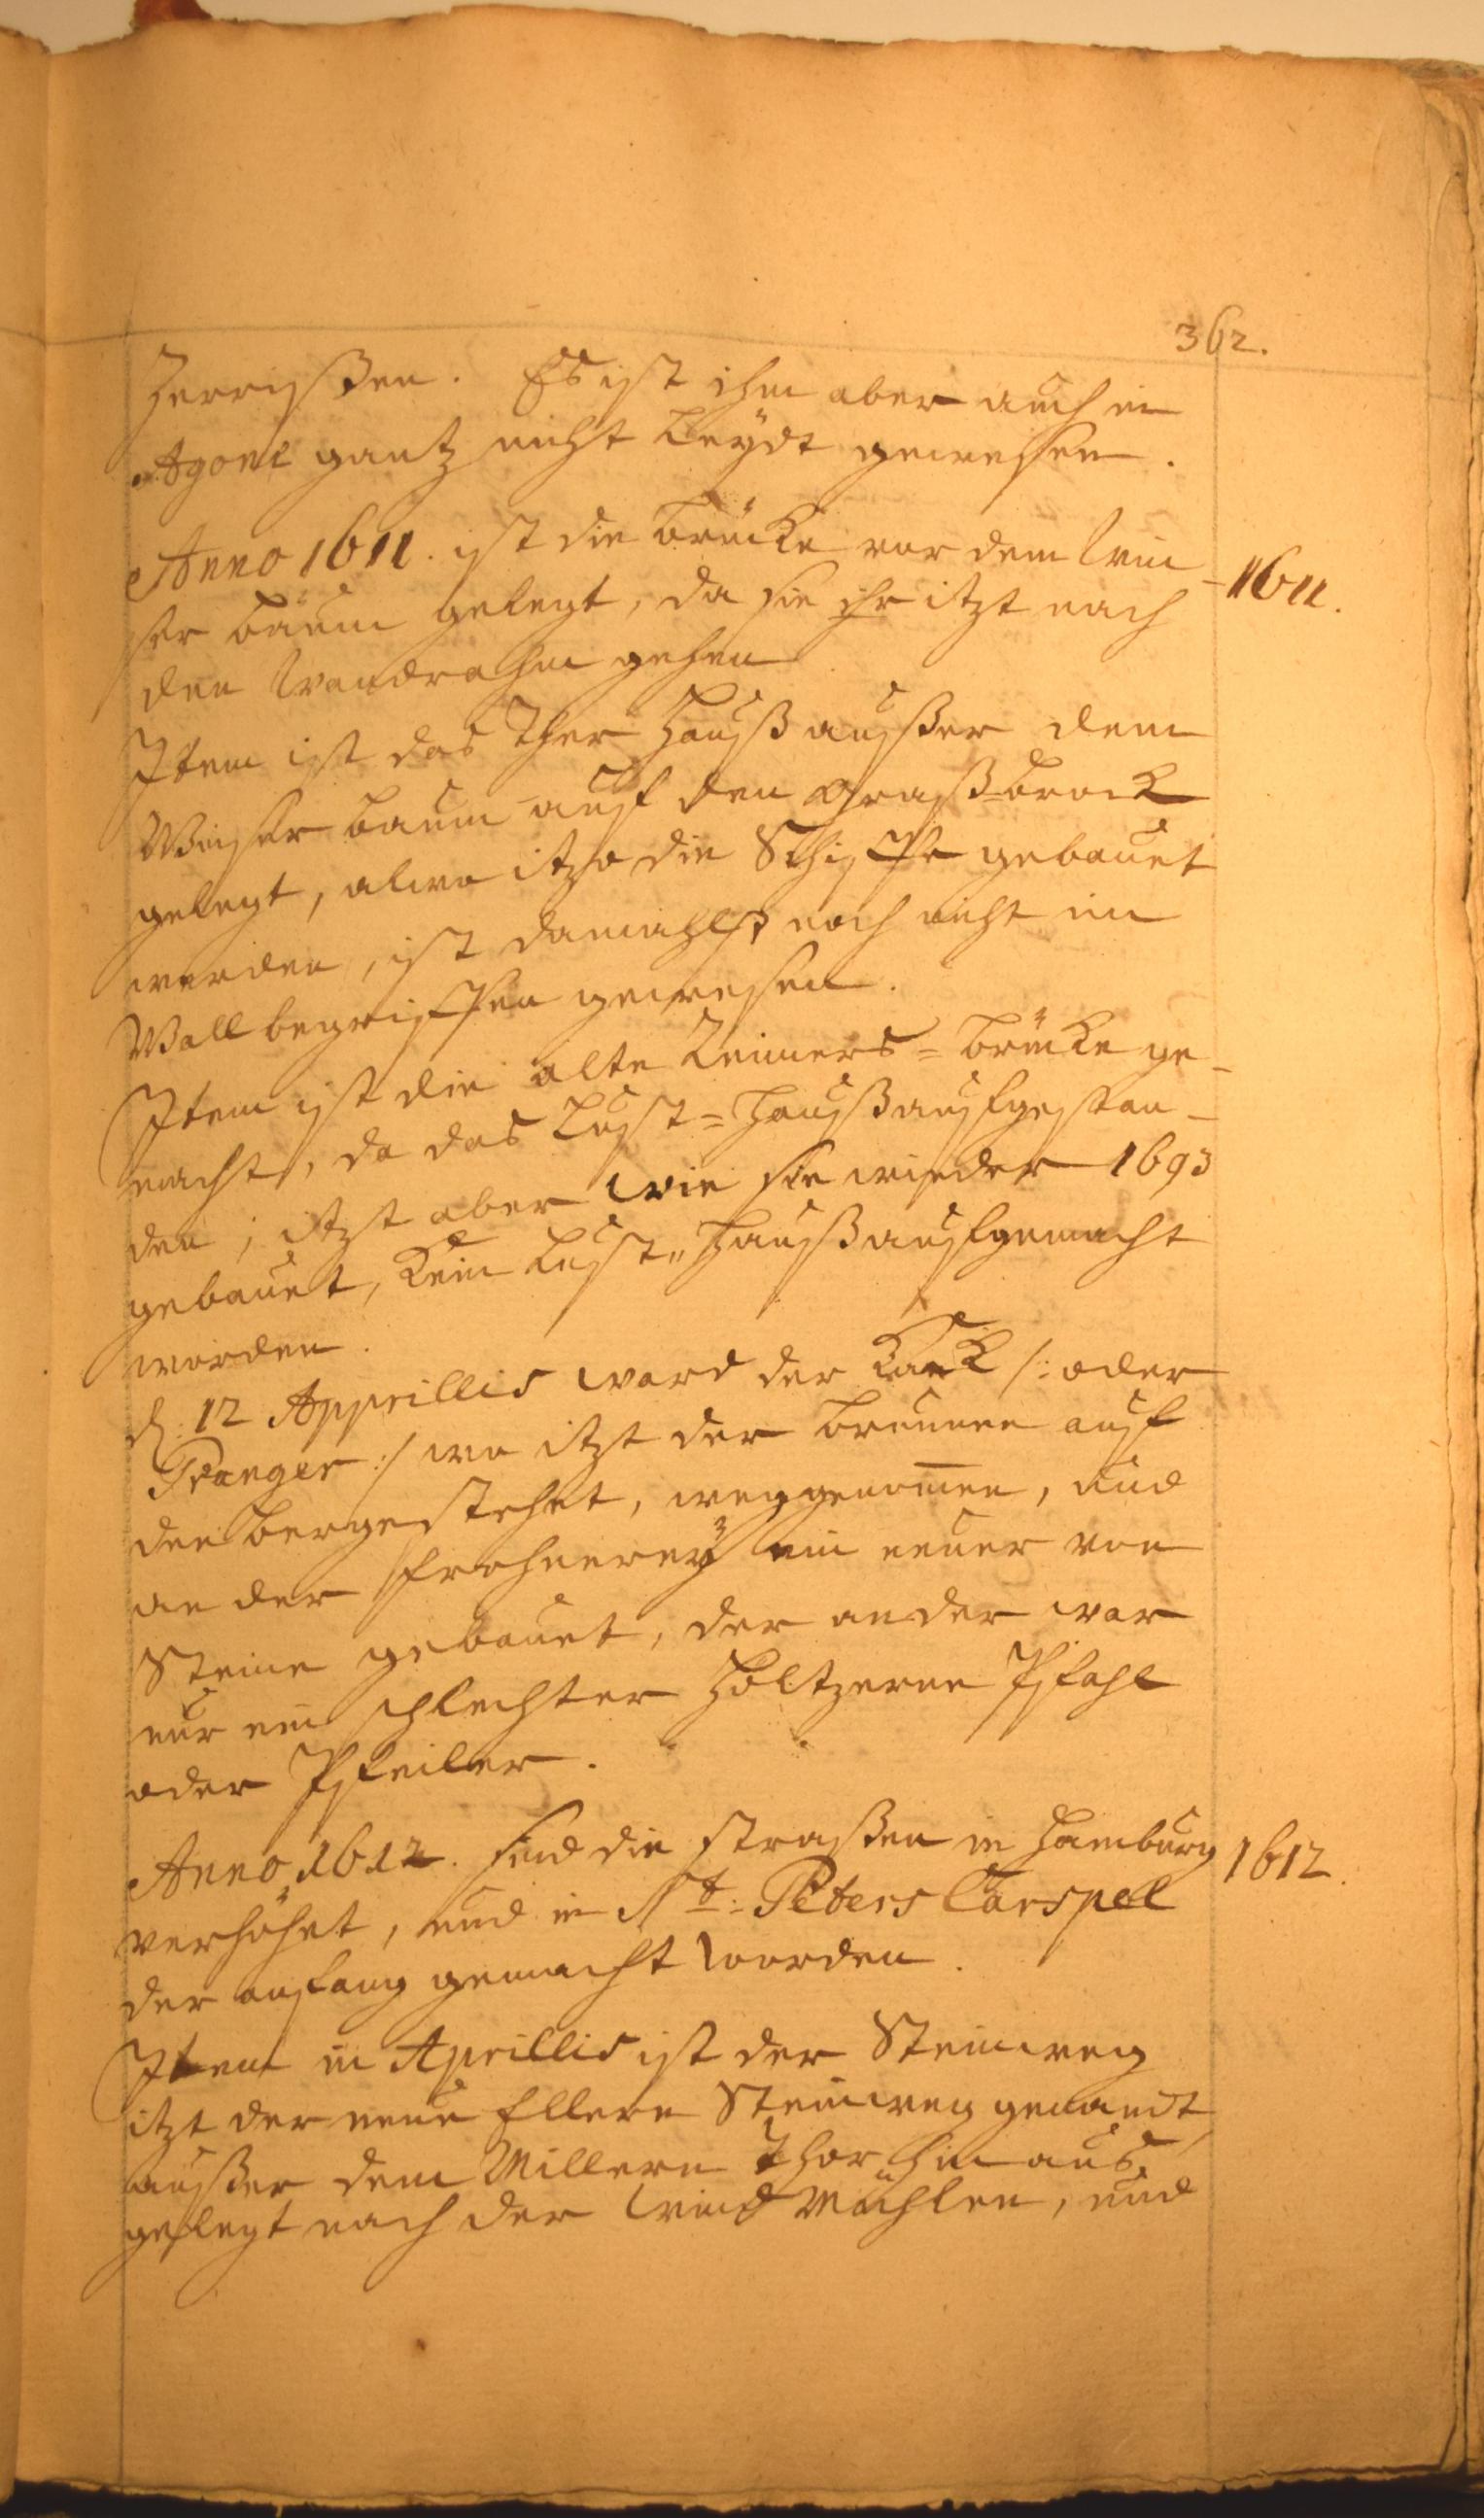 362.
Zerrißen. Es ist ihm aber auch in
Agone gantz nicht Leydt gewesen.
Anno 1611. ist die Brücke vor dem Win-
1611.
ser Baum gelegt, da sie itzt nach
den Wandrahm gehen
Item ist das Ther Hauß außer dem
Winser Baum auf den Graßbrock
gelegt, alwo itzo die Schiffe gebauet
werden, ist damahlß noch nicht im
Wall begriffen gewesen.
Item ist die alte Reimers=Brücke ge-
macht, da das Lust=Hauß auf gestan-
den, itzt aber wie sie wieder 1693
gebauet, kein Lust" Hauß aufgemacht
worden.
d. 12 Apprillis ward der Kaek /: oder
Pranger :/ wo itzt der Brunnen auf
den Berge stehet, weggenom̄en, und
an der Frohnerey ein neuer von
Steine gebauet, der ander war
nur ein schlechter Höltzerne Pfahl
oder Pfeiler.
Anno 1612. sind die straßen in Hamburg
1612.
verhöhet, und in St: Peters Carspel
der anfang gemacht worden.
Item in Aprillis ist der Steinweg
itzt der neue Ellern Steinweg genandt,
außer dem Millern Thor hinaus
gelegt nach der Wind Mühlen, und